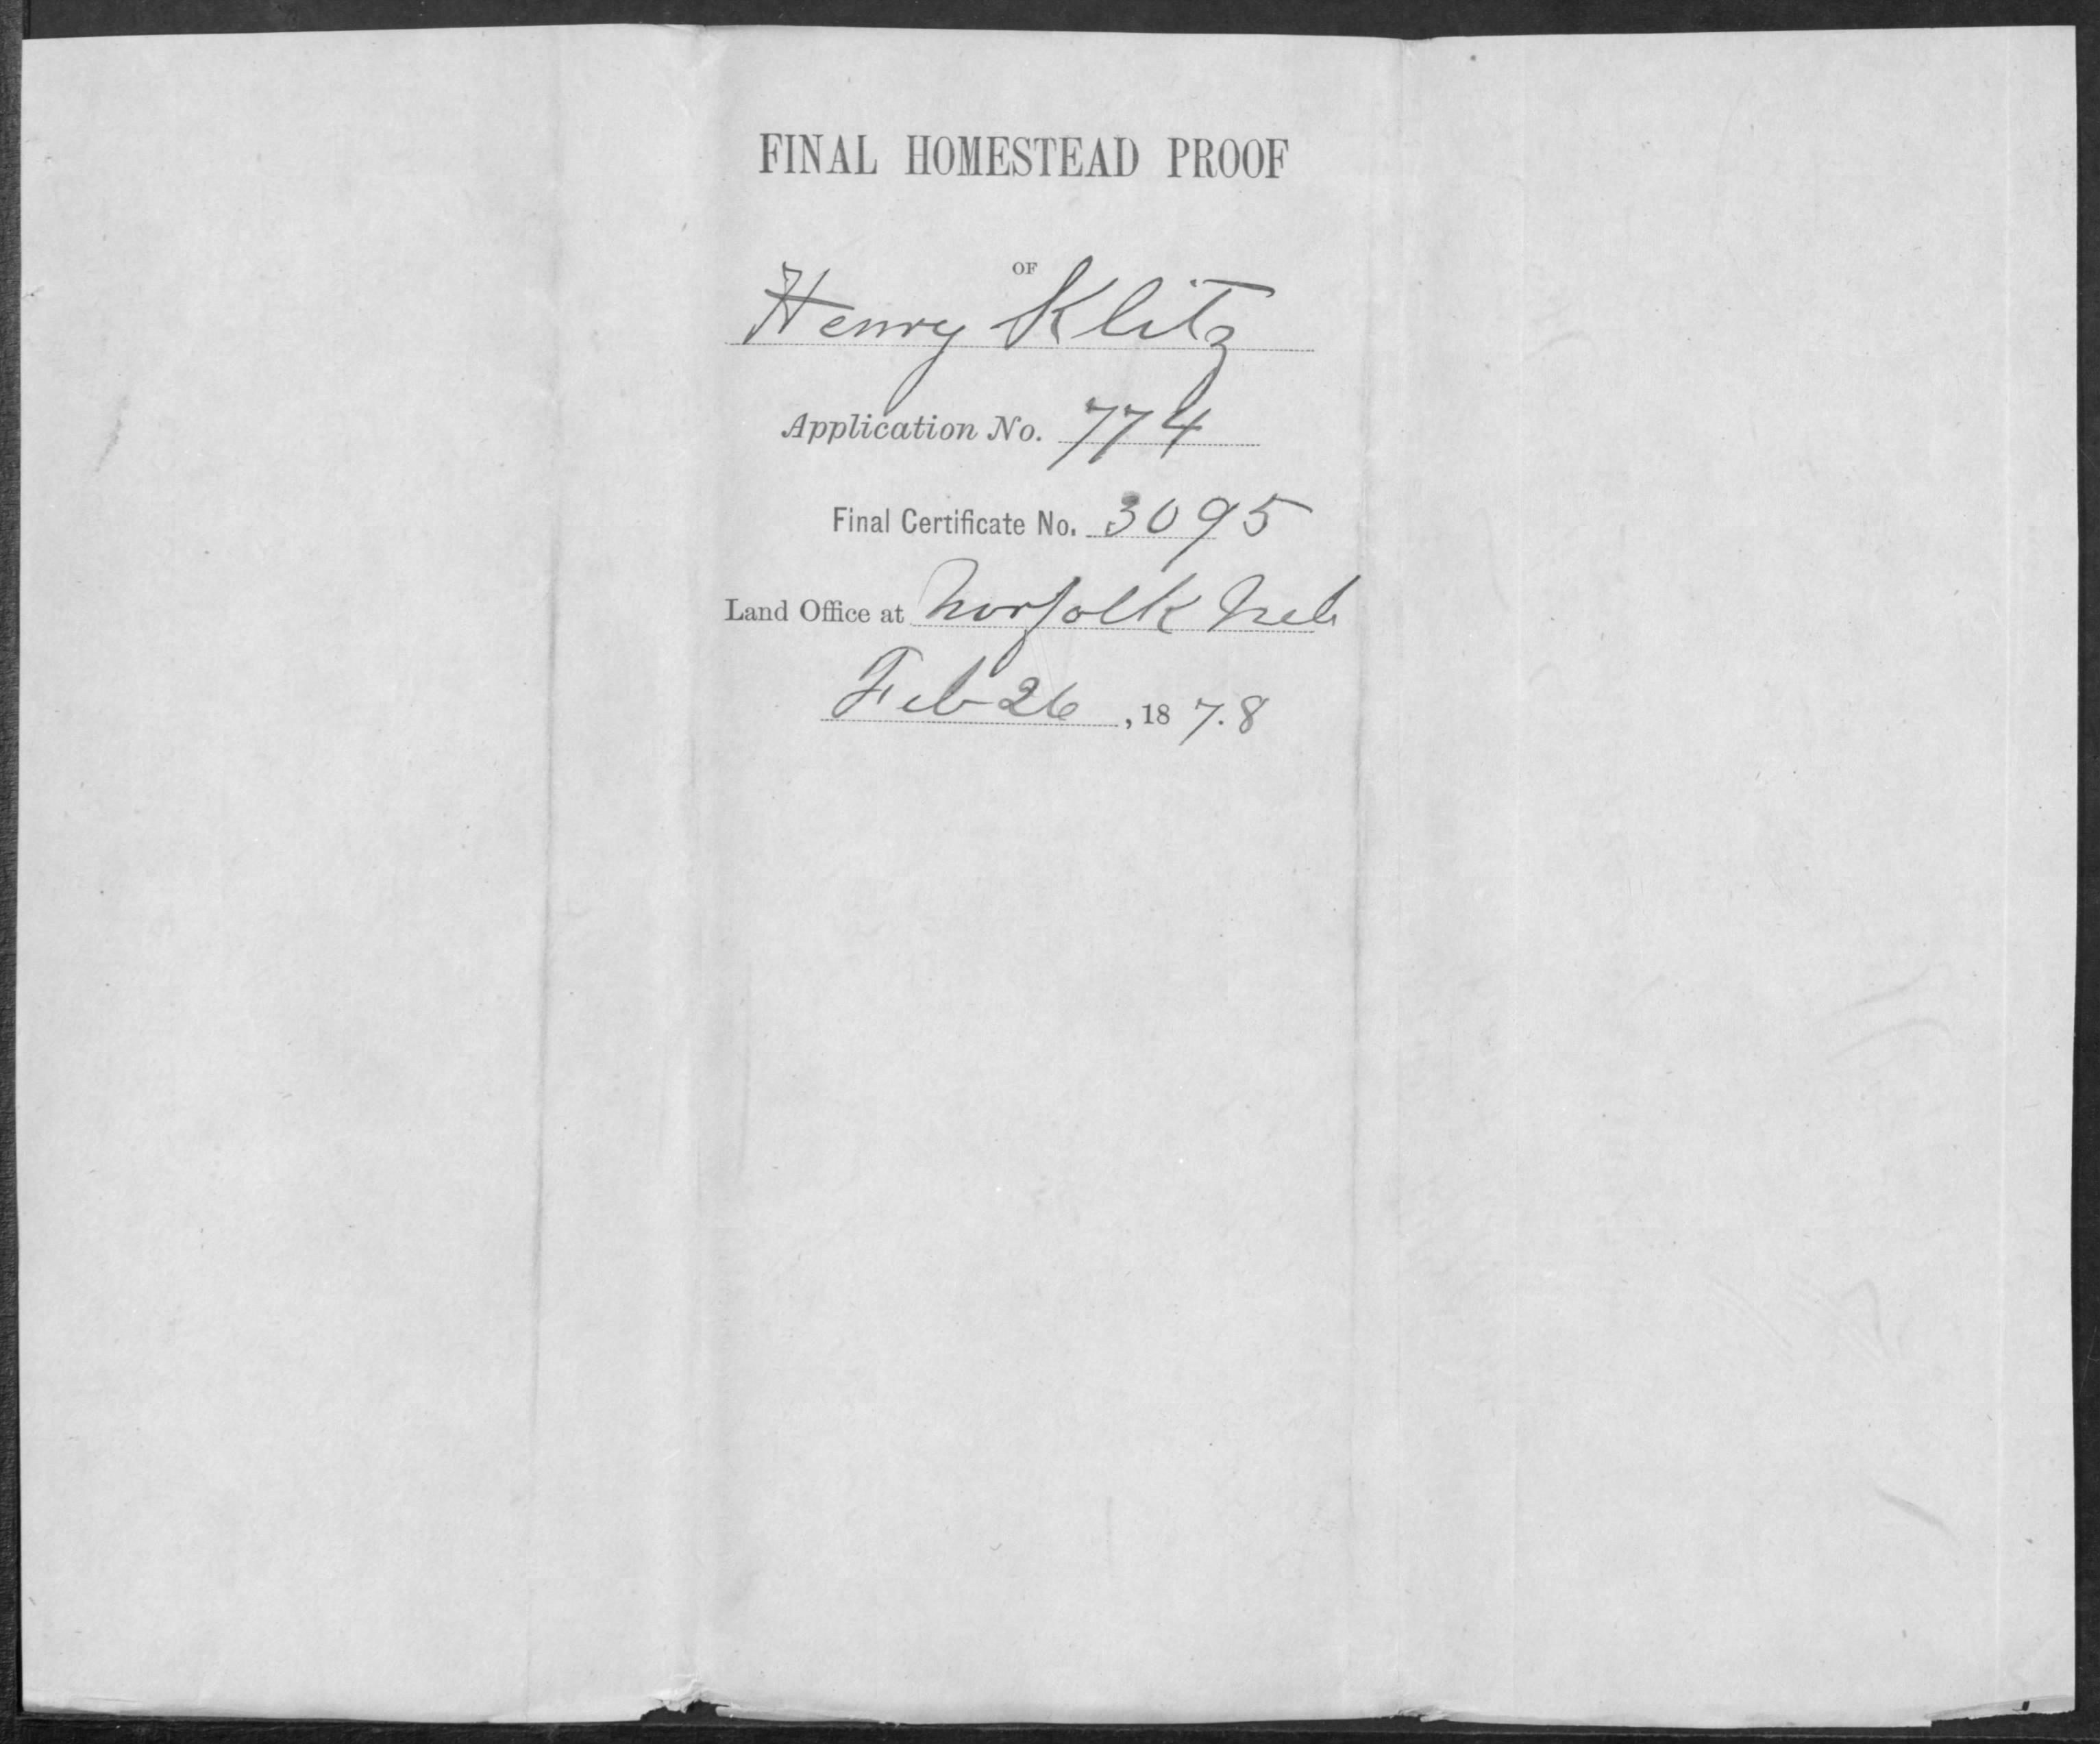 FINAL HOMESTEAD PROOF
OF
Henry Klitz
Application No. 774
Final Certificate No. 3095
Land Office at Norfolk Neb
Feb 26, 187.8